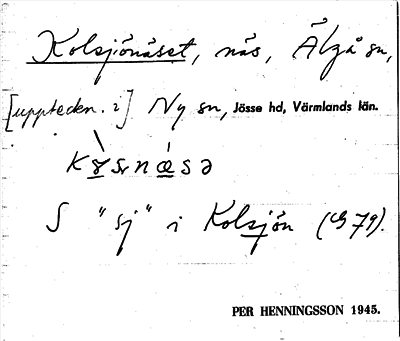 Kolsjönäset, näs, Älgå sn,
[uppteckn. i] Ny sn, Jösse hd, Värmlands län.
S "sj" i Kolsjön (LG 79).
PER HENNINGSSON 1945.